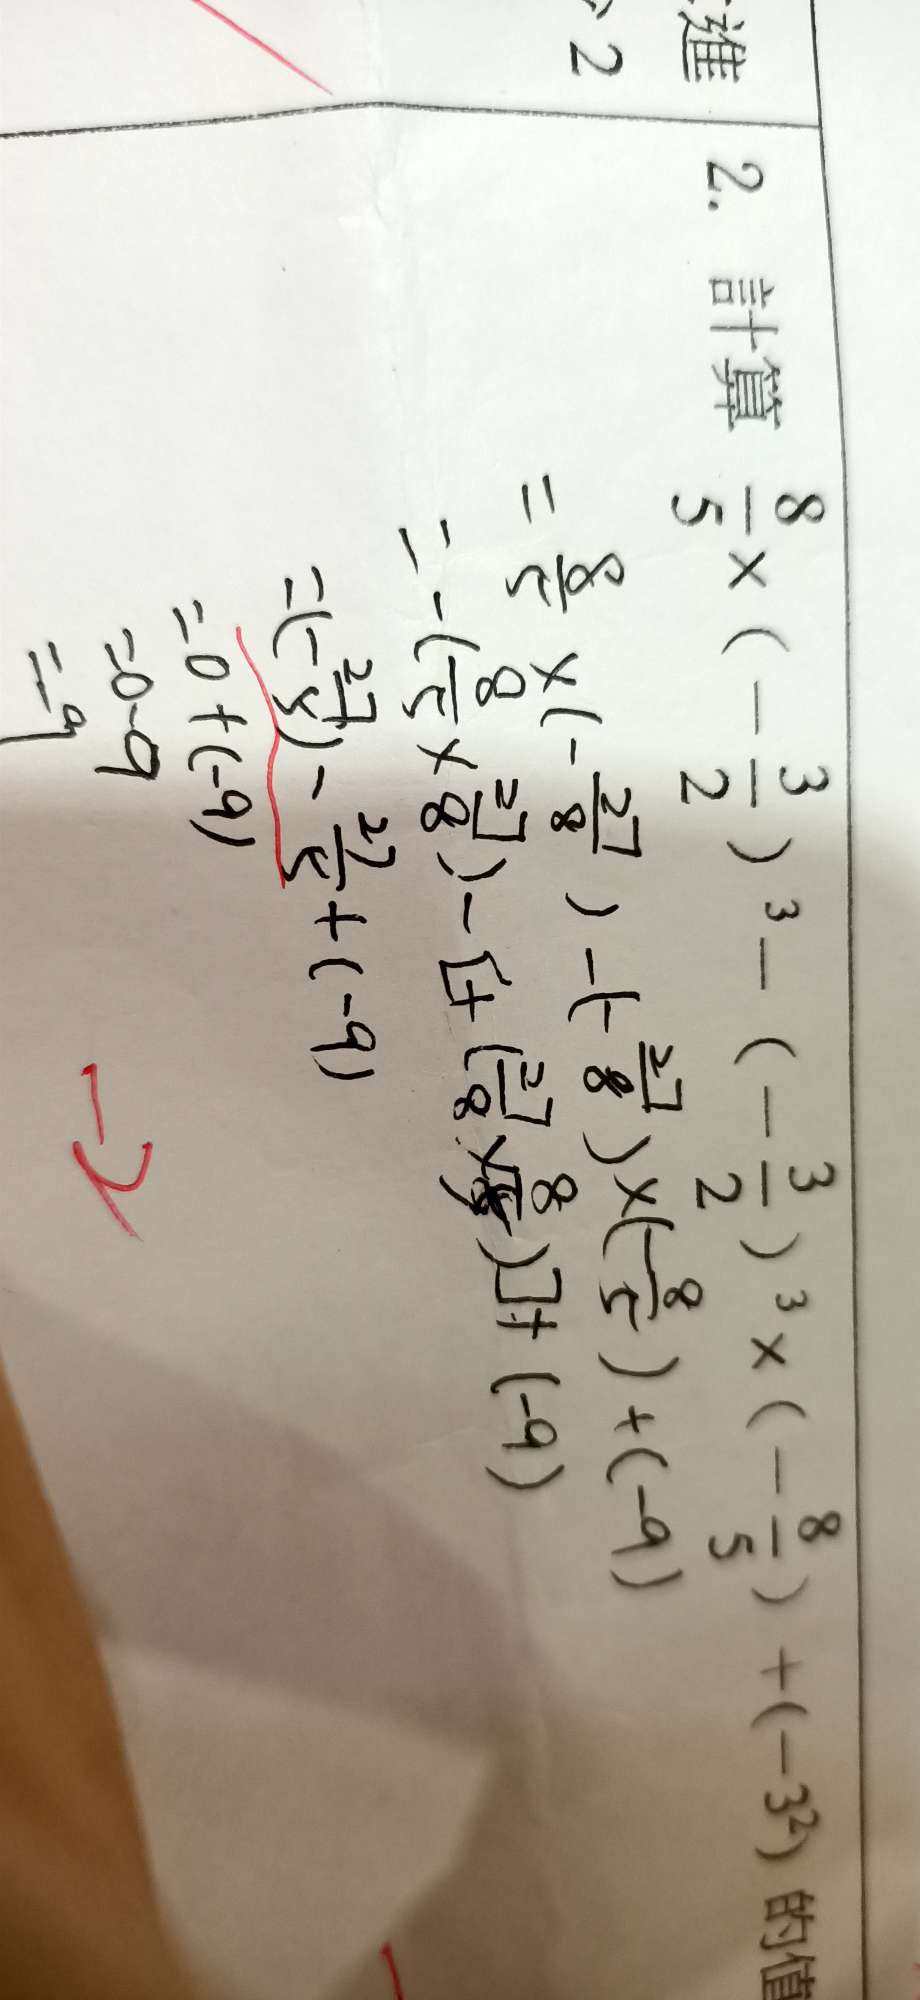 進
2
2. 計算 8/5 × ( - 3/2 )³ - ( - 3/2 )³ × ( - 8/5 ) + ( - 3² ) 的值
= 8/5 × ( - 27/8 ) - ( - 27/8 ) × ( - 8/5 ) + ( -9 )
= - ( 8/5 × 27/8 ) - [ + ( 27/8 × 8/5 ) ] + ( -9 )
= ( - 27/5 ) - 27/5 + ( -9 )
= 0 + ( -9 )
= 0 - 9
= -9
-2